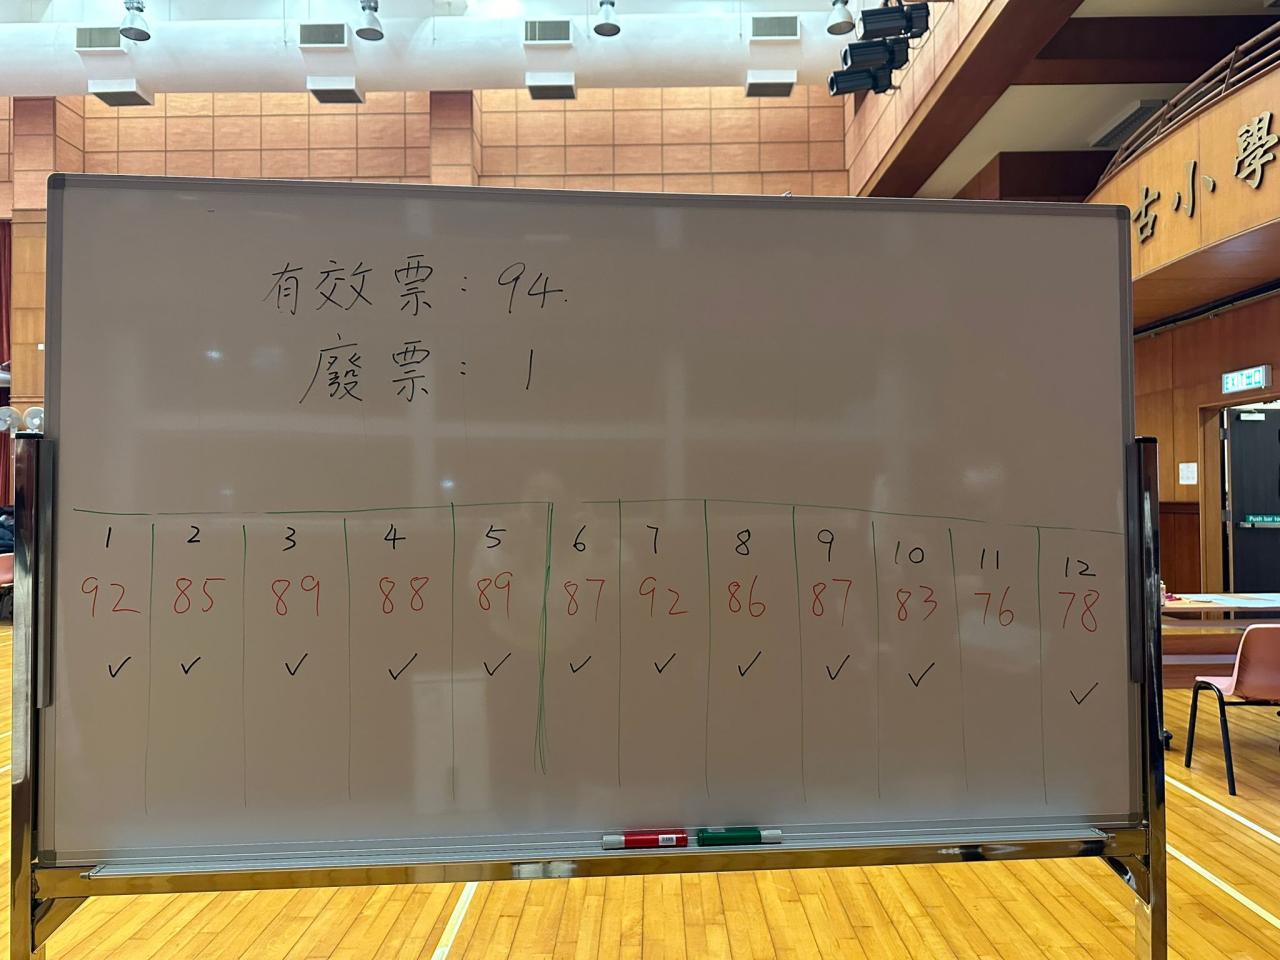 有效票：94.
廢票：1
1 2 3 4 5 6 7 8 9 10 11 12
92 85 89 88 89 87 92 86 87 83 76 78
✓ ✓ ✓ ✓ ✓ ✓ ✓ ✓ ✓ ✓ ✓
古小學
EXIT 出口